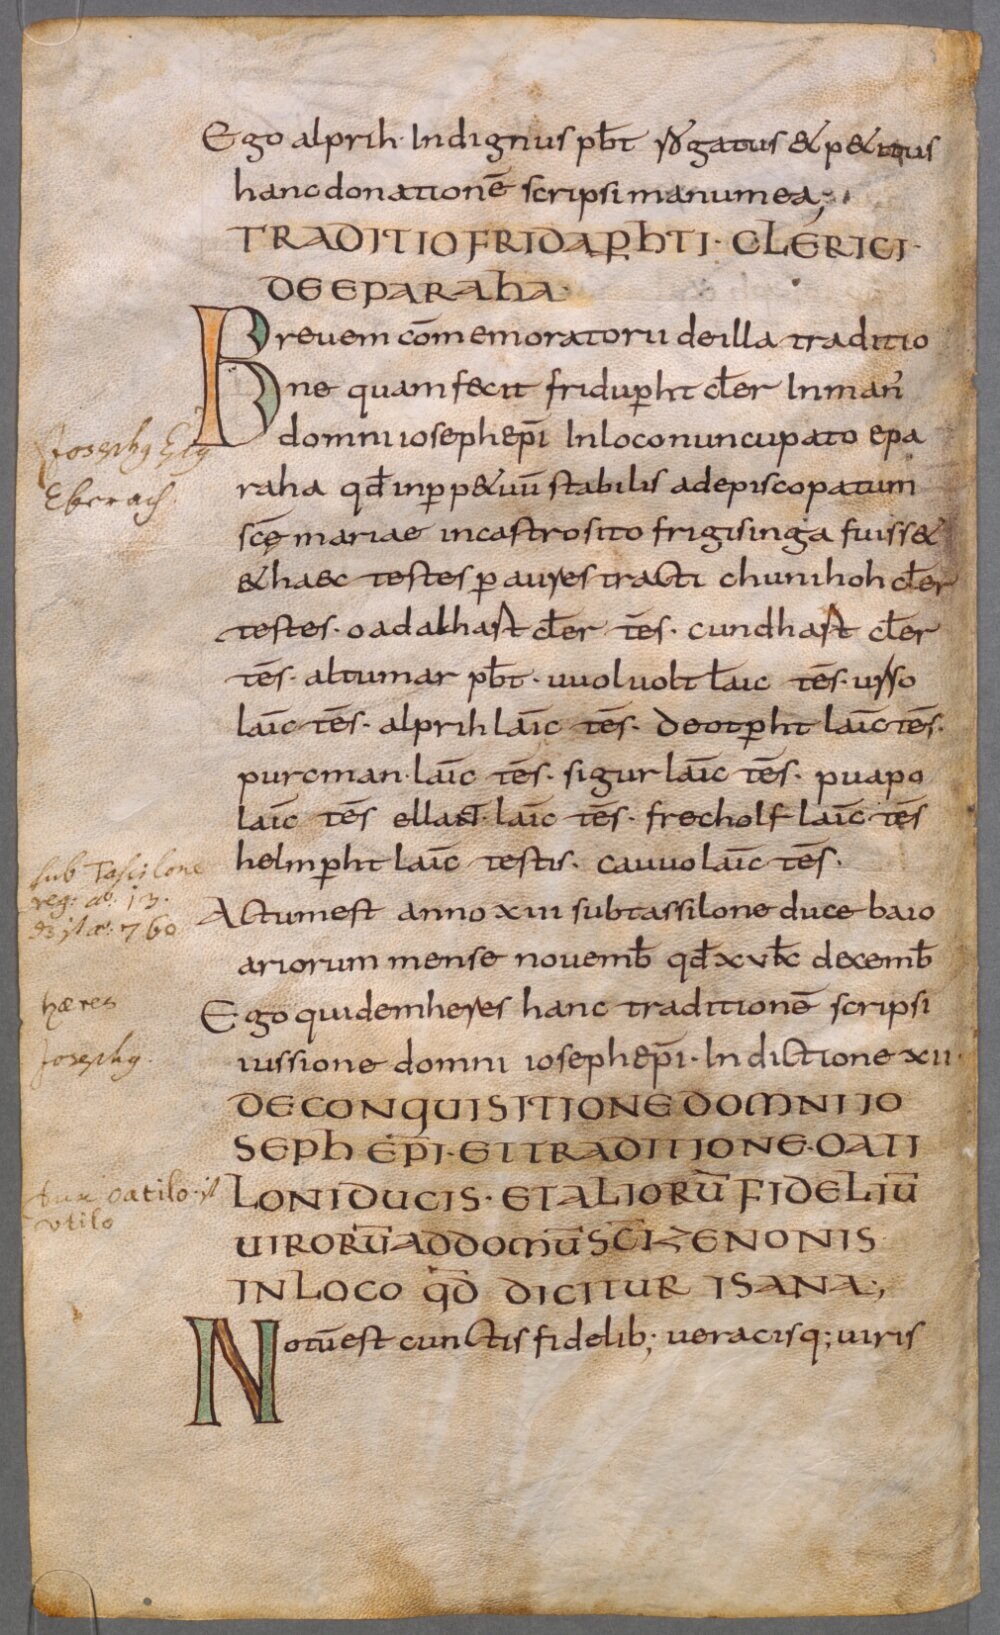 Ego alprih. Indignus pƀt rogatus & p&itus
hanc donationē scripsi manu mea;
TRADITIO FRIDAP̄HTI. CLERICI.
DE EPARAHA.
Brevem cōmemoratoru de illa traditio
ne quam fecit fridup̄ht cl̄er In man̄
domni ioseph ep̄i In loco nuncupato epa
raha qd̄ in p̄p&uū stabilis ad episcopatum
scę mariae in castro sito frigisinga fuiss&
& haec testes p̄ aures tracti chunihoh cl̄er
testes. oadalhast cl̄er tēs. cundhast cl̄er
tēs. altumar pƀt. uuoluolt l̄aic tēs. urso
laic̄ tēs. alprih laic̄ tēs. deotp̄ht laic̄ tēs.
purcman. laic̄ tēs. sigur laic̄ tēs. puapo
laic̄ tēs ellast. laic̄ tēs. frecholf laic̄ tēs
helmp̄ht laic̄ testis. cauuo laic̄ tēs.
Actum est anno xiii sub tassilone duce baio
ariorum mense novemƀ qd̄ xv kl̄ decemƀ
Ego quidem heres hanc traditionē scripsi
iussione domni ioseph ep̄i. Indictione xii.
DE CONQUISITIONE DOMNI IO
SEPH EP̄I. ET TRADITIONE. OATI
LONI DUCIS. ET ALIORŪ FIDELIŪ
UIRORŪ AD DOMŪ SC̄I ZENONIS
IN LOCO QD̄ DICITUR ISANA;
Notū est cunctis fidelib; veracisq; viris
Josephy
Eberach
sub Tassilone
reg: aō: 13.
760
hæres
Josephy.
dux oatilo
vtilo